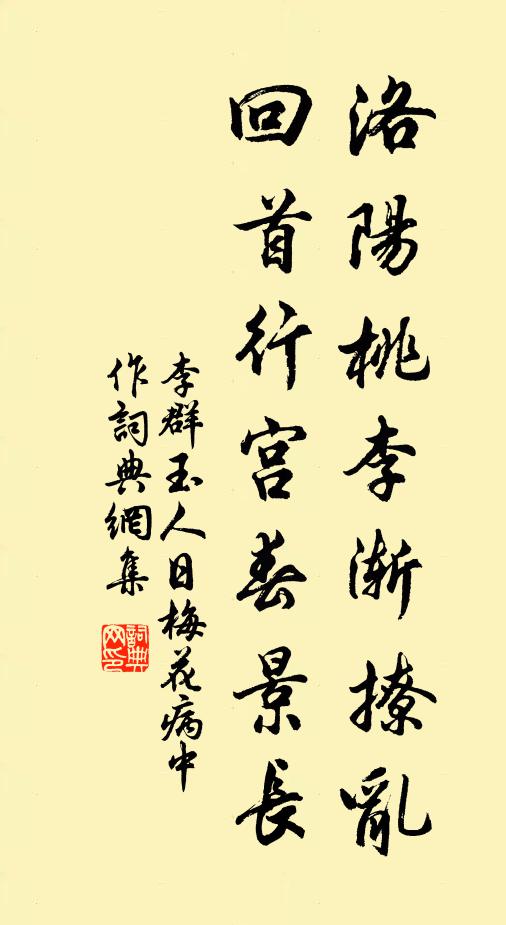 洛陽桃李漸撩亂
回首行宮春景長
李群玉人日梅花病中
作詞典網集
詞典
网印